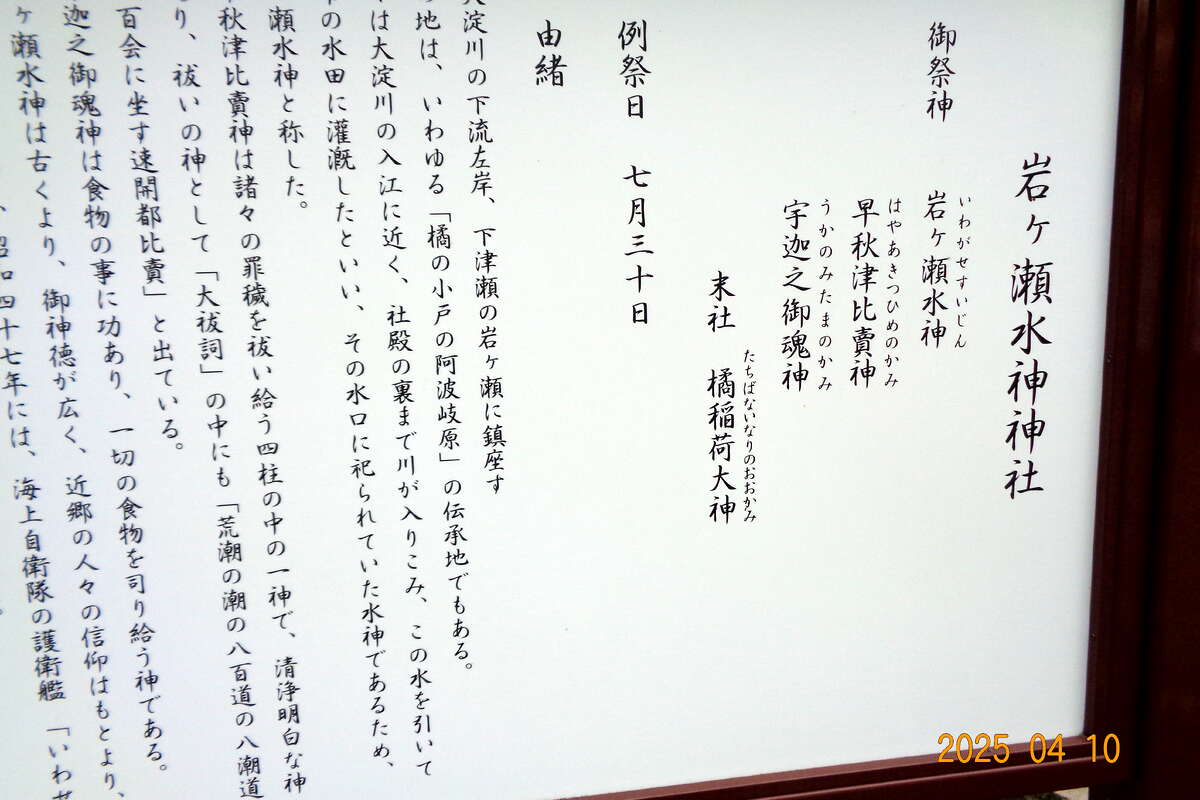 岩ヶ瀬水神神社
御祭神
いわがせすいじん
岩ヶ瀬水神
はやあきつひめのかみ
早秋津比賣神
うかのみたまのかみ
宇迦之御魂神
末社 橘稲荷大神
たちばないなりのおおかみ
例祭日 七月三十日
由緒
大淀川の下流左岸、下津瀬の岩ヶ瀬に鎮座す
の地は、いわゆる「橘の小戸の阿波岐原」の伝承地でもある。
は大淀川の入江に近く、社殿の裏まで川が入りこみ、この水を引いて
の水田に灌漑したといい、その水口に祀られていた水神であるため、
瀬水神と称した。
秋津比賣神は諸々の罪穢を祓い給う四柱の中の一神で、清浄明白な神
り、祓いの神として「大祓詞」の中にも「荒潮の潮の八百道の八潮道
百会に坐す速開都比賣」と出ている。
迦之御魂神は食物の事に功あり、一切の食物を司り給う神である。
ヶ瀬水神は古くより、御神徳が広く、近郷の人々の信仰はもとより、
、昭和四十七年には、海上自衛隊の護衛艦「いわせ
2025 04 10